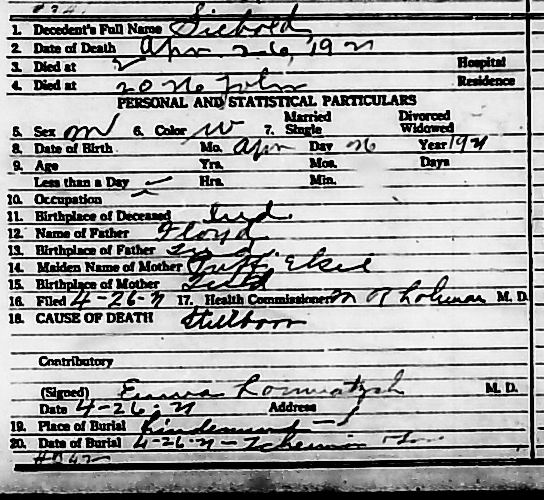 1. Decedent's Full Name Siebold
2. Date of Death Apr 26, 1921
3. Died at Hospital
4. Died at 20 No John Residence
PERSONAL AND STATISTICAL PARTICULARS
5. Sex M 6. Color W 7. Married Single Divorced Widowed
8. Date of Birth Mo. Apr Day 26 Year 1921
9. Age Yrs. Mos. Days
Less than a Day Hrs. Min.
10. Occupation
11. Birthplace of Deceased Ind.
12. Name of Father Floyd
13. Birthplace of Father Ind.
14. Maiden Name of Mother Elsie
15. Birthplace of Mother Ind
16. Filed 4-26-21 17. Health Commissioner M. D.
18. CAUSE OF DEATH Stillborn
Contributory
(Signed) Emma M. D.
Date 4-26-21 Address
19. Place of Burial Lindenwood
20. Date of Burial 4-26-21